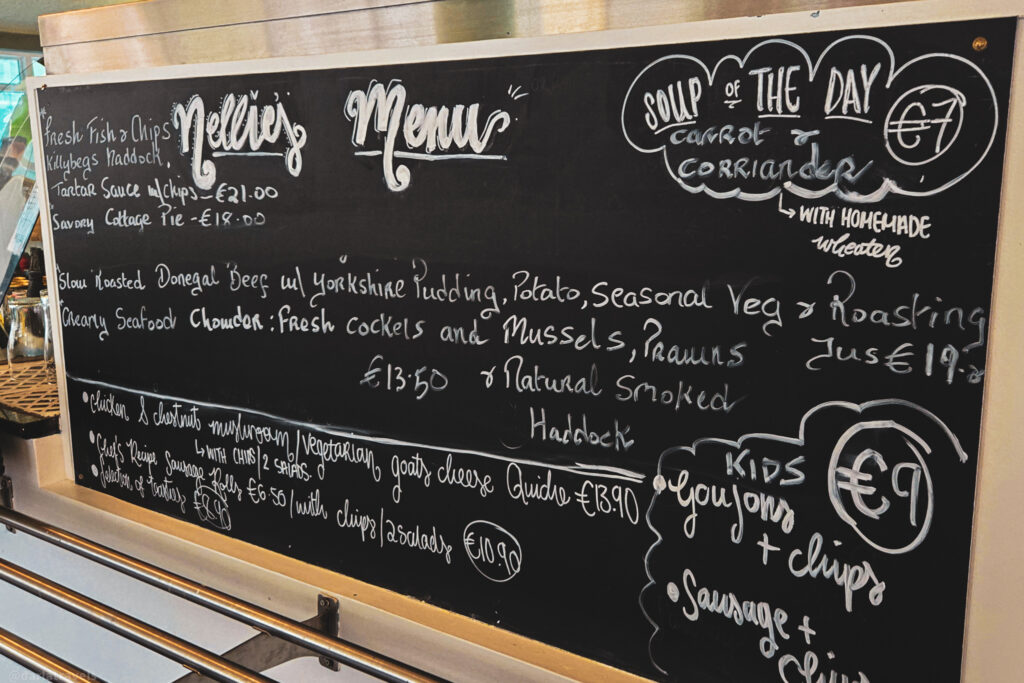 Nellie's Menu
Fresh Fish & Chips
Killybegs Haddock,
Tartar Sauce w/chips - €21.00
Savory Cottage Pie - €18.00
SOUP OF THE DAY
€7
CARROT &
CORRIANDER
WITH HOMEMADE
wheaten
Slow Roasted Donegal Beef w/ Yorkshire Pudding, Potato, Seasonal Veg & Roasting
Jus €19.
Creamy Seafood Chowder: Fresh Cockels and Mussels, Prawns
€13.50 & Natural Smoked
Haddock
Chicken & chestnut mushroom / vegetarian goats cheese Quiche €13.90
WITH CHIPS / 2 SALADS
Chef's Recipe Sausage Rolls €6.50 / with chips / 2 salads €10.90
Selection of
KIDS
€9
Goujons
+ chips
Sausage +